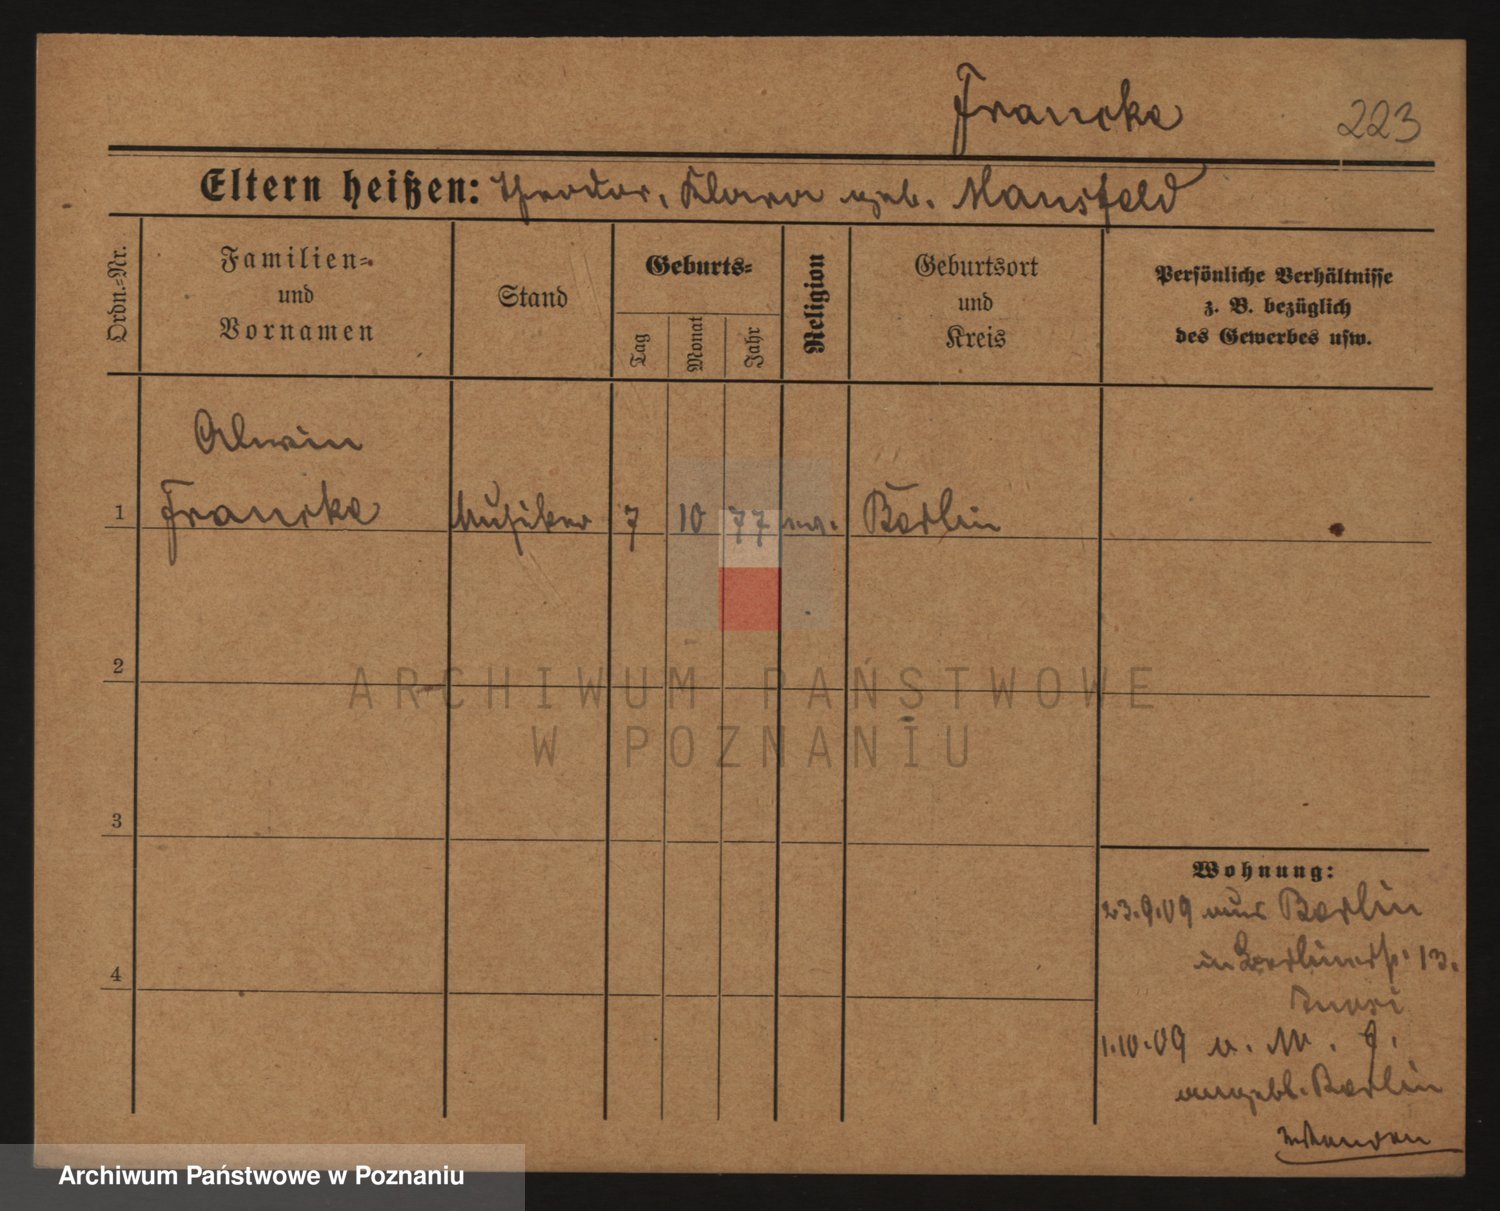 Francke 223
Eltern heißen: Theodor, Klara geb. Mansfeld
Ordn.=Nr.
Familien=
und
Vornamen
Stand
Geburts=
Tag
Monat
Jahr
Religion
Geburtsort
und
Kreis
Persönliche Verhältnisse
z. B. bezüglich
des Gewerbes usw.
Alwin
1 Francke Musiker 7 10 77 ev. Berlin
2
3
4
Wohnung:
23.9.09 aus Berlin
in Berlinerstr. 13.
1.10.09 v. M. 9.
angebl. Berlin
ARCHIWUM PAŃSTWOWE
W POZNANIU
Archiwum Państwowe w Poznaniu